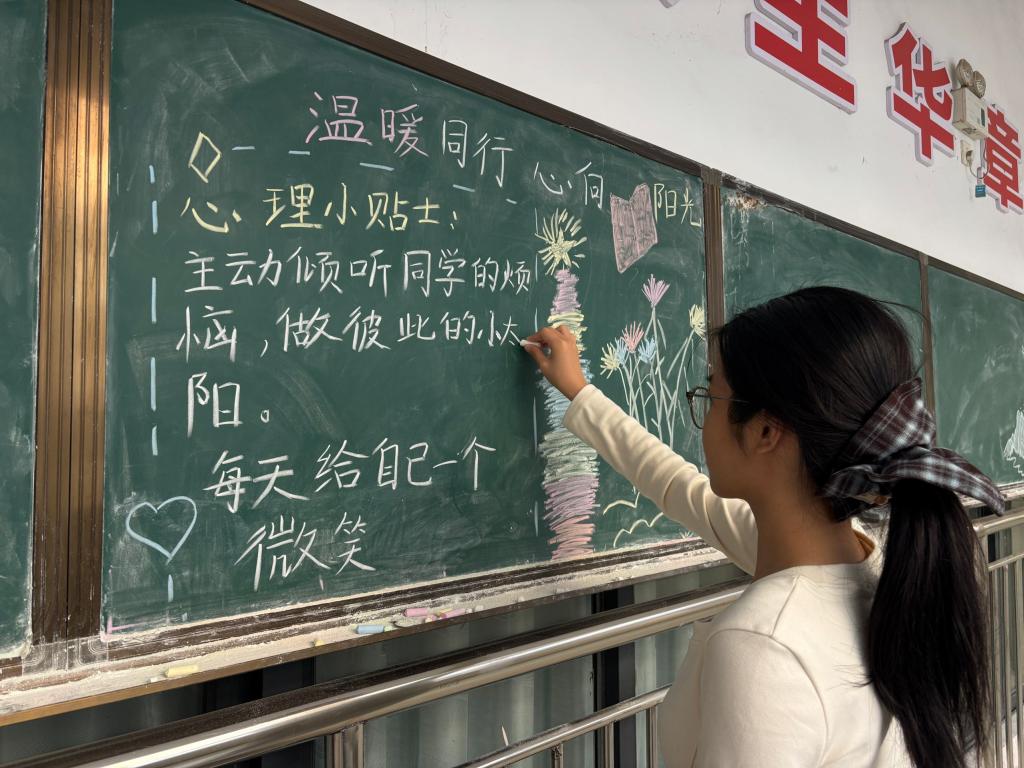 温暖同行 心向阳光
心理小贴士:
主动倾听同学的烦
恼,做彼此的小太
阳。
每天给自己一个
微笑
华章